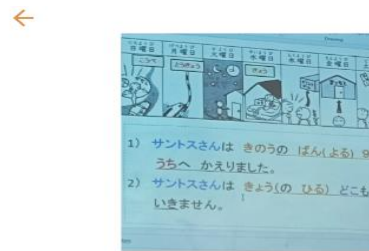 日曜日 月曜日 火曜日 水曜日 木曜日 金曜日
こうべ とうきょう きょう
1) サントスさんは きのうの ばん(よる) 9
うちへ かえりました。
2) サントスさんは きょう(の ひる) どこも
いきません。